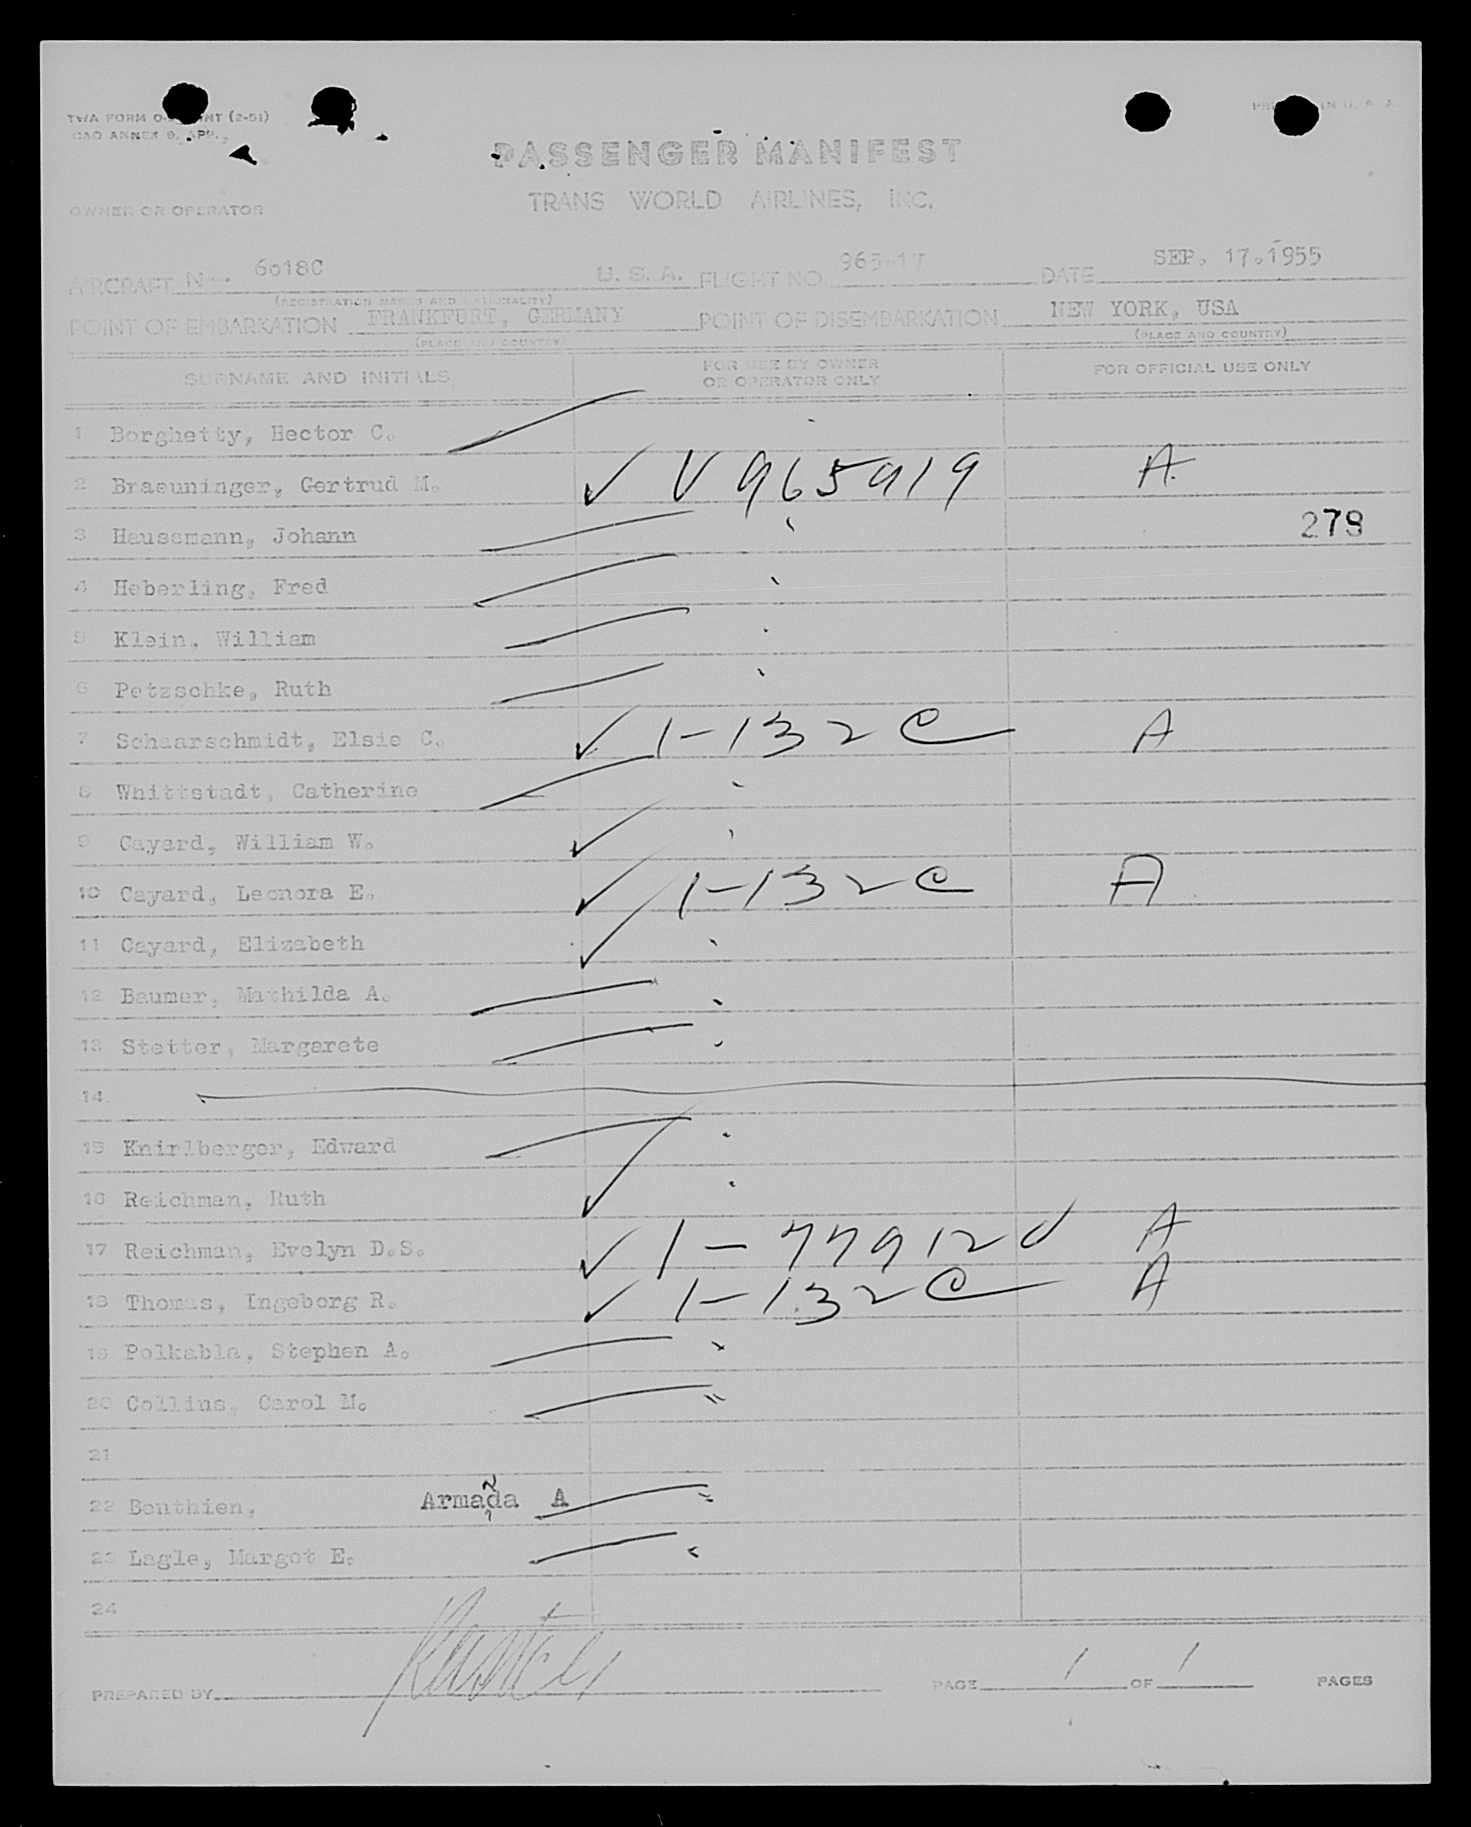 TWA FORM
ICAO ANNEX 9, APP.
PRINTED IN U. S. A.
PASSENGER MANIFEST
TRANS WORLD AIRLINES, INC.
OWNER OR OPERATOR
AIRCRAFT N 6018C U. S. A. FLIGHT NO. DATE SEP. 17.1955
(REGISTRATION MARKS AND NATIONALITY)
POINT OF EMBARKATION FRANKFURT, GERMANY POINT OF DISEMBARKATION NEW YORK, USA
(PLACE AND COUNTRY) (PLACE AND COUNTRY)
SURNAME AND INITIALS FOR USE BY OWNER OR OPERATOR ONLY FOR OFFICIAL USE ONLY
1 Borghetty, Hector C.
2 Braeuninger, Gertrud M. ✓ V 965919 A.
3 Haussmann, Johann 278
4 Heberling, Fred
5 Klein, William
6 Petzschke, Ruth
7 Schaarschmidt, Elsie C. ✓ 1-132 C A
8 Whittstadt, Catherine
9 Cayard, William W. ✓
10 Cayard, Leonora E. ✓ 1-132 C A
11 Cayard, Elizabeth ✓
12 Baumer, Mathilda A.
13 Stetter, Margarete
14
15 Knirlberger, Edward
16 Reichman, Ruth ✓
17 Reichman, Evelyn D.S. ✓ 1-77912 d A
18 Thomas, Ingeborg R. ✓ 1-132 C A
19 Polkabla, Stephen A.
20 Collins, Carol M.
21
22 Bonthien, Armada A
23 Lagle, Margot E.
24
PREPARED BY PAGE 1 OF 1 PAGES